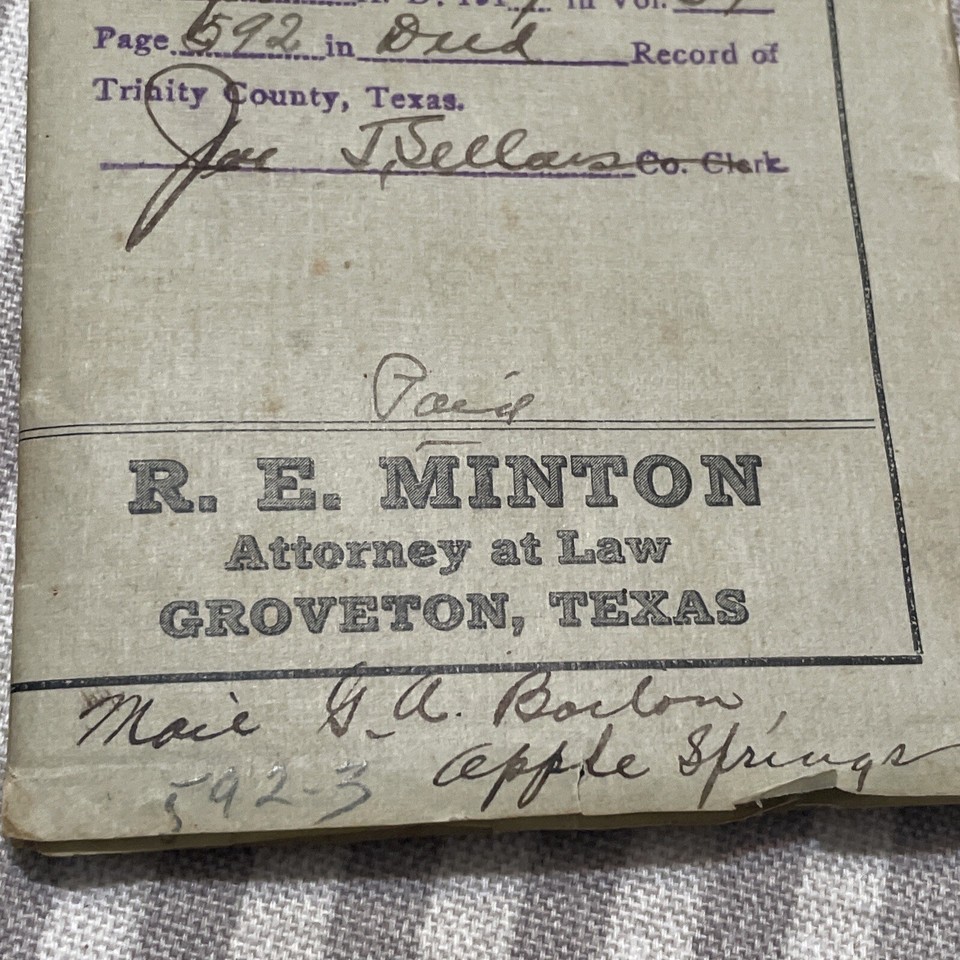 in Vol.
Page 592 in Deed Record of
Trinity County, Texas.
Joe J. Sellars Co. Clerk
Paid
R. E. MINTON
Attorney at Law
GROVETON, TEXAS
Mail G. A. Borton,
Apple Springs
592-3